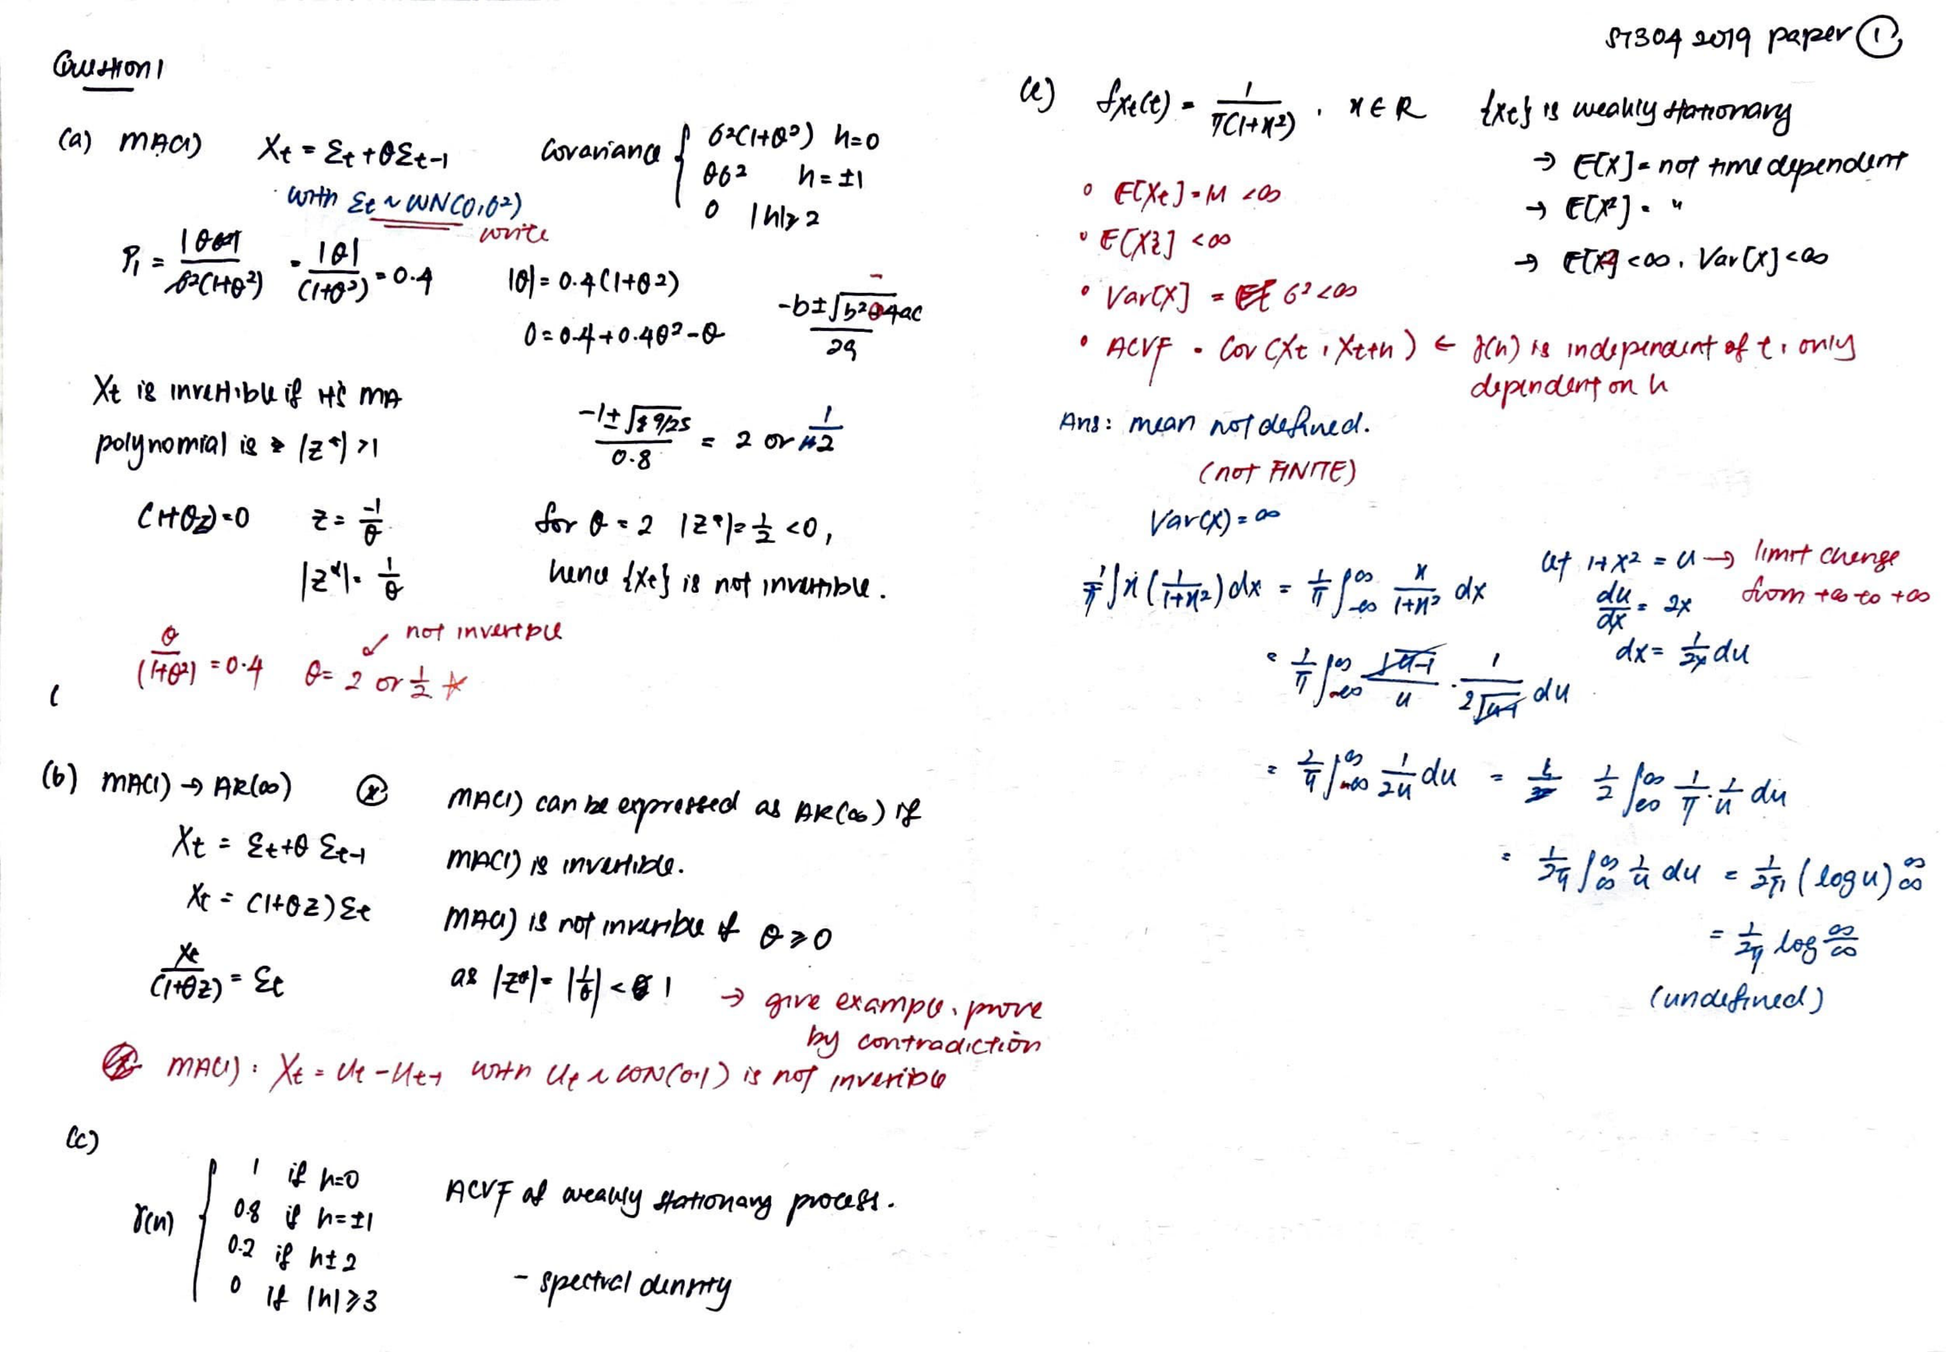 ST304 2019 paper ①
Question 1
(a) MA(1) Xt = Σt + θΣt-1 Covariance { σ²(1+θ²) h=0
θσ² h=±1
0 |h|≥2
with Σt ~ WN(0,σ²)
write
ρ1 = |θσ²| / σ²(1+θ²) = |θ| / (1+θ²) = 0.4 |θ| = 0.4(1+θ²)
0 = 0.4+0.4θ²-θ
-b±√b²-4ac / 2a
Xt is invertible if its MA
polynomial is |z*|>1
-1±√9/25 / 0.8 = 2 or 1/2
(1+θz)=0 z = -1/θ
|z*| = 1/θ
for θ = 2 |z*|= 1/2 <0,
hence {Xt} is not invertible.
θ/(1+θ²) = 0.4 θ = 2 or 1/2
not invertible
(b) MA(1) → AR(∞)
Xt = Σt+θ Σt-1
Xt = (1+θz)Σt
Xt/(1+θz) = Σt
MA(1) can be expressed as AR(∞) if
MA(1) is invertible.
MA(1) is not invertible if θ ≥ 0
as |z*| = |1/θ| < 1 → give example, prove
by contradiction
MA(1) : Xt = Ut - Ut-1 with Ut ~ WN(0,1) is not invertible
(c)
γ(h) { 1 if h=0
0.8 if h=±1
0.2 if h±2
0 if |h|≥3
ACVF of weakly stationary process.
- spectral density
(e) fXt(t) = 1/π(1+x²) , x∈R {Xt} is weakly stationary
→ E[X] = not time dependent
→ E[X²] = "
→ E[X²] <∞, Var[X]<∞
• E[Xt] = μ <∞
• E[Xt²] <∞
• Var[X] = σ² <∞
• ACVF = Cov(Xt, Xt+h) ← γ(h) is independent of t, only
dependent on h
Ans: mean not defined.
(not FINITE)
Var(X) = ∞
1/π ∫ x (1/1+x²) dx = 1/π ∫-∞^∞ x/1+x² dx
let 1+x² = u → limit change
from +∞ to +∞
du/dx = 2x
dx = 1/2x du
= 1/π ∫∞^∞ √u-1/u · 1/2√u-1 du
= 2/π ∫∞^∞ 1/2u du = 1/2 ∫∞^∞ 1/π · 1/u du
= 1/2π ∫∞^∞ 1/u du = 1/2π (log u)∞^∞
= 1/2π log ∞/∞
(undefined)